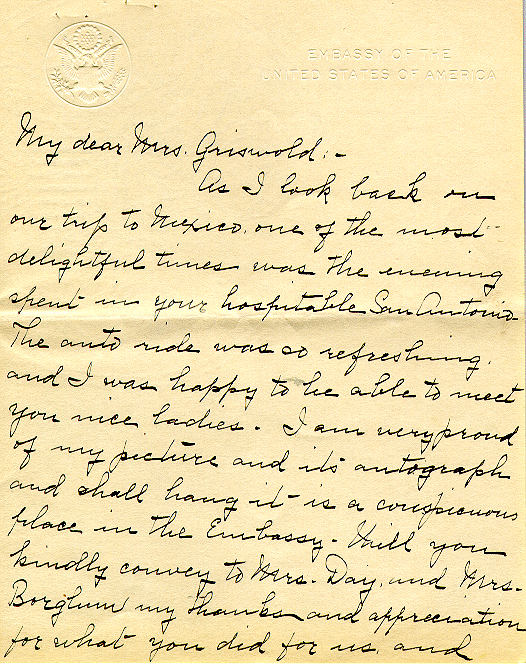 EMBASSY OF THE
UNITED STATES OF AMERICA
My dear Mrs. Griswold:-
As I look back on
our trip to Mexico, one of the most
delightful times was the evening
spent in your hospitable San Antonio.
The auto ride was so refreshing,
and I was happy to be able to meet
you nice ladies. I am very proud
of my picture and its autograph
and shall hang it is a conspicuous
place in the Embassy. Will you
kindly convey to Mrs. Day, and Mrs.
Borglum my thanks and appreciation
for what you did for us, and